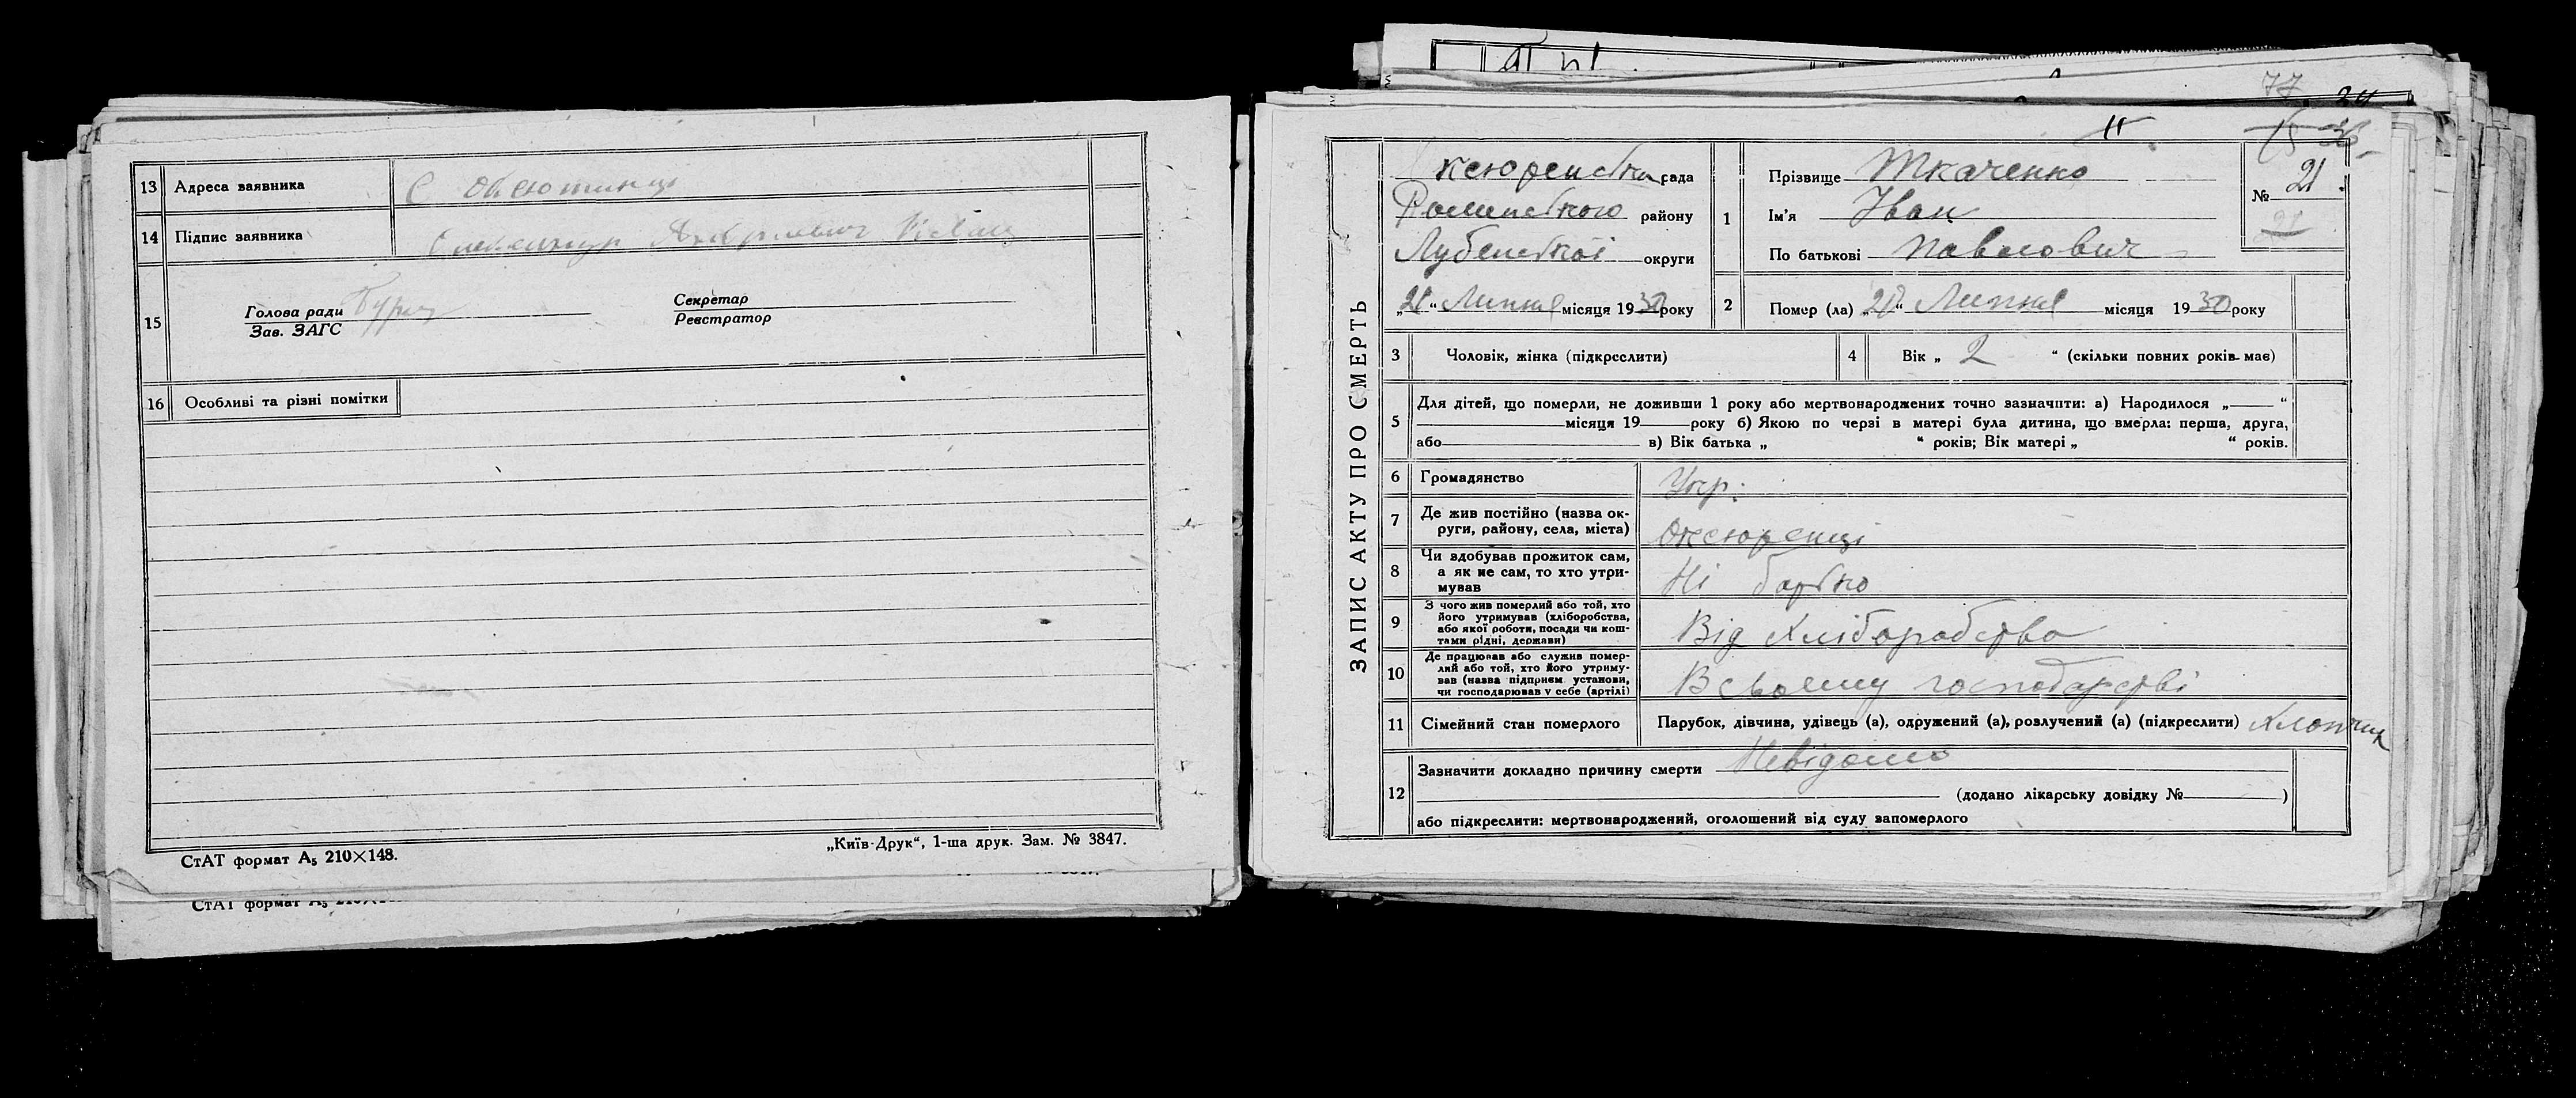 13 Адреса заявника С
14 Підпис заявника
15 Голова ради
Зав. ЗАГС
Секретар
Реєстратор
16 Особливі та різні помітки
СтАТ формат А5 210×148.
„Київ-Друк“, 1-ша друк. Зам. № 3847.
СтАТ формат А5
77
ЗАПИС АКТУ ПРО СМЕРТЬ
рада
Роменського району
Лубенської округи
„21“ Липня місяця 1930 року
1 Прізвище Ткаченко
Ім'я Іван
По батькові Павлович
№ 21
21
2 Помер (ла) „20“ Липня місяця 1930 року
3 Чоловік, жінка (підкреслити)
4 Вік „ 2 “ (скільки повних років має)
5 Для дітей, що померли, не доживши 1 року або мертвонароджених точно зазначити: а) Народилося „ “
місяця 19 року б) Якою по черзі в матері була дитина, що вмерла: перша, друга,
або в) Вік батька „ “ років; Вік матері „ “ років.
6 Громадянство Укр.
7 Де жив постійно (назва ок-
руги, району, села, міста)
8 Чи здобував прожиток сам,
а як не сам, то хто утри-
мував
Ні батько
9 З чого жив померлий або той, хто
його утримував (хліборобства,
або якої роботи, посади чи кош-
тами рідні, держави)
Від Хліборобства
10 Де працював або служив помер-
лий або той, хто його утриму-
вав (назва підприєм. установи,
чи господарював у себе (артілі)
В своєму господарстві
11 Сімейний стан померлого Парубок, дівчина, удівець (а), одружений (а), розлучений (а) (підкреслити) Хлопчик
12 Зазначити докладно причину смерти Невідомо
(додано лікарську довідку № )
або підкреслити: мертвонароджений, оголошений від суду запомерлого